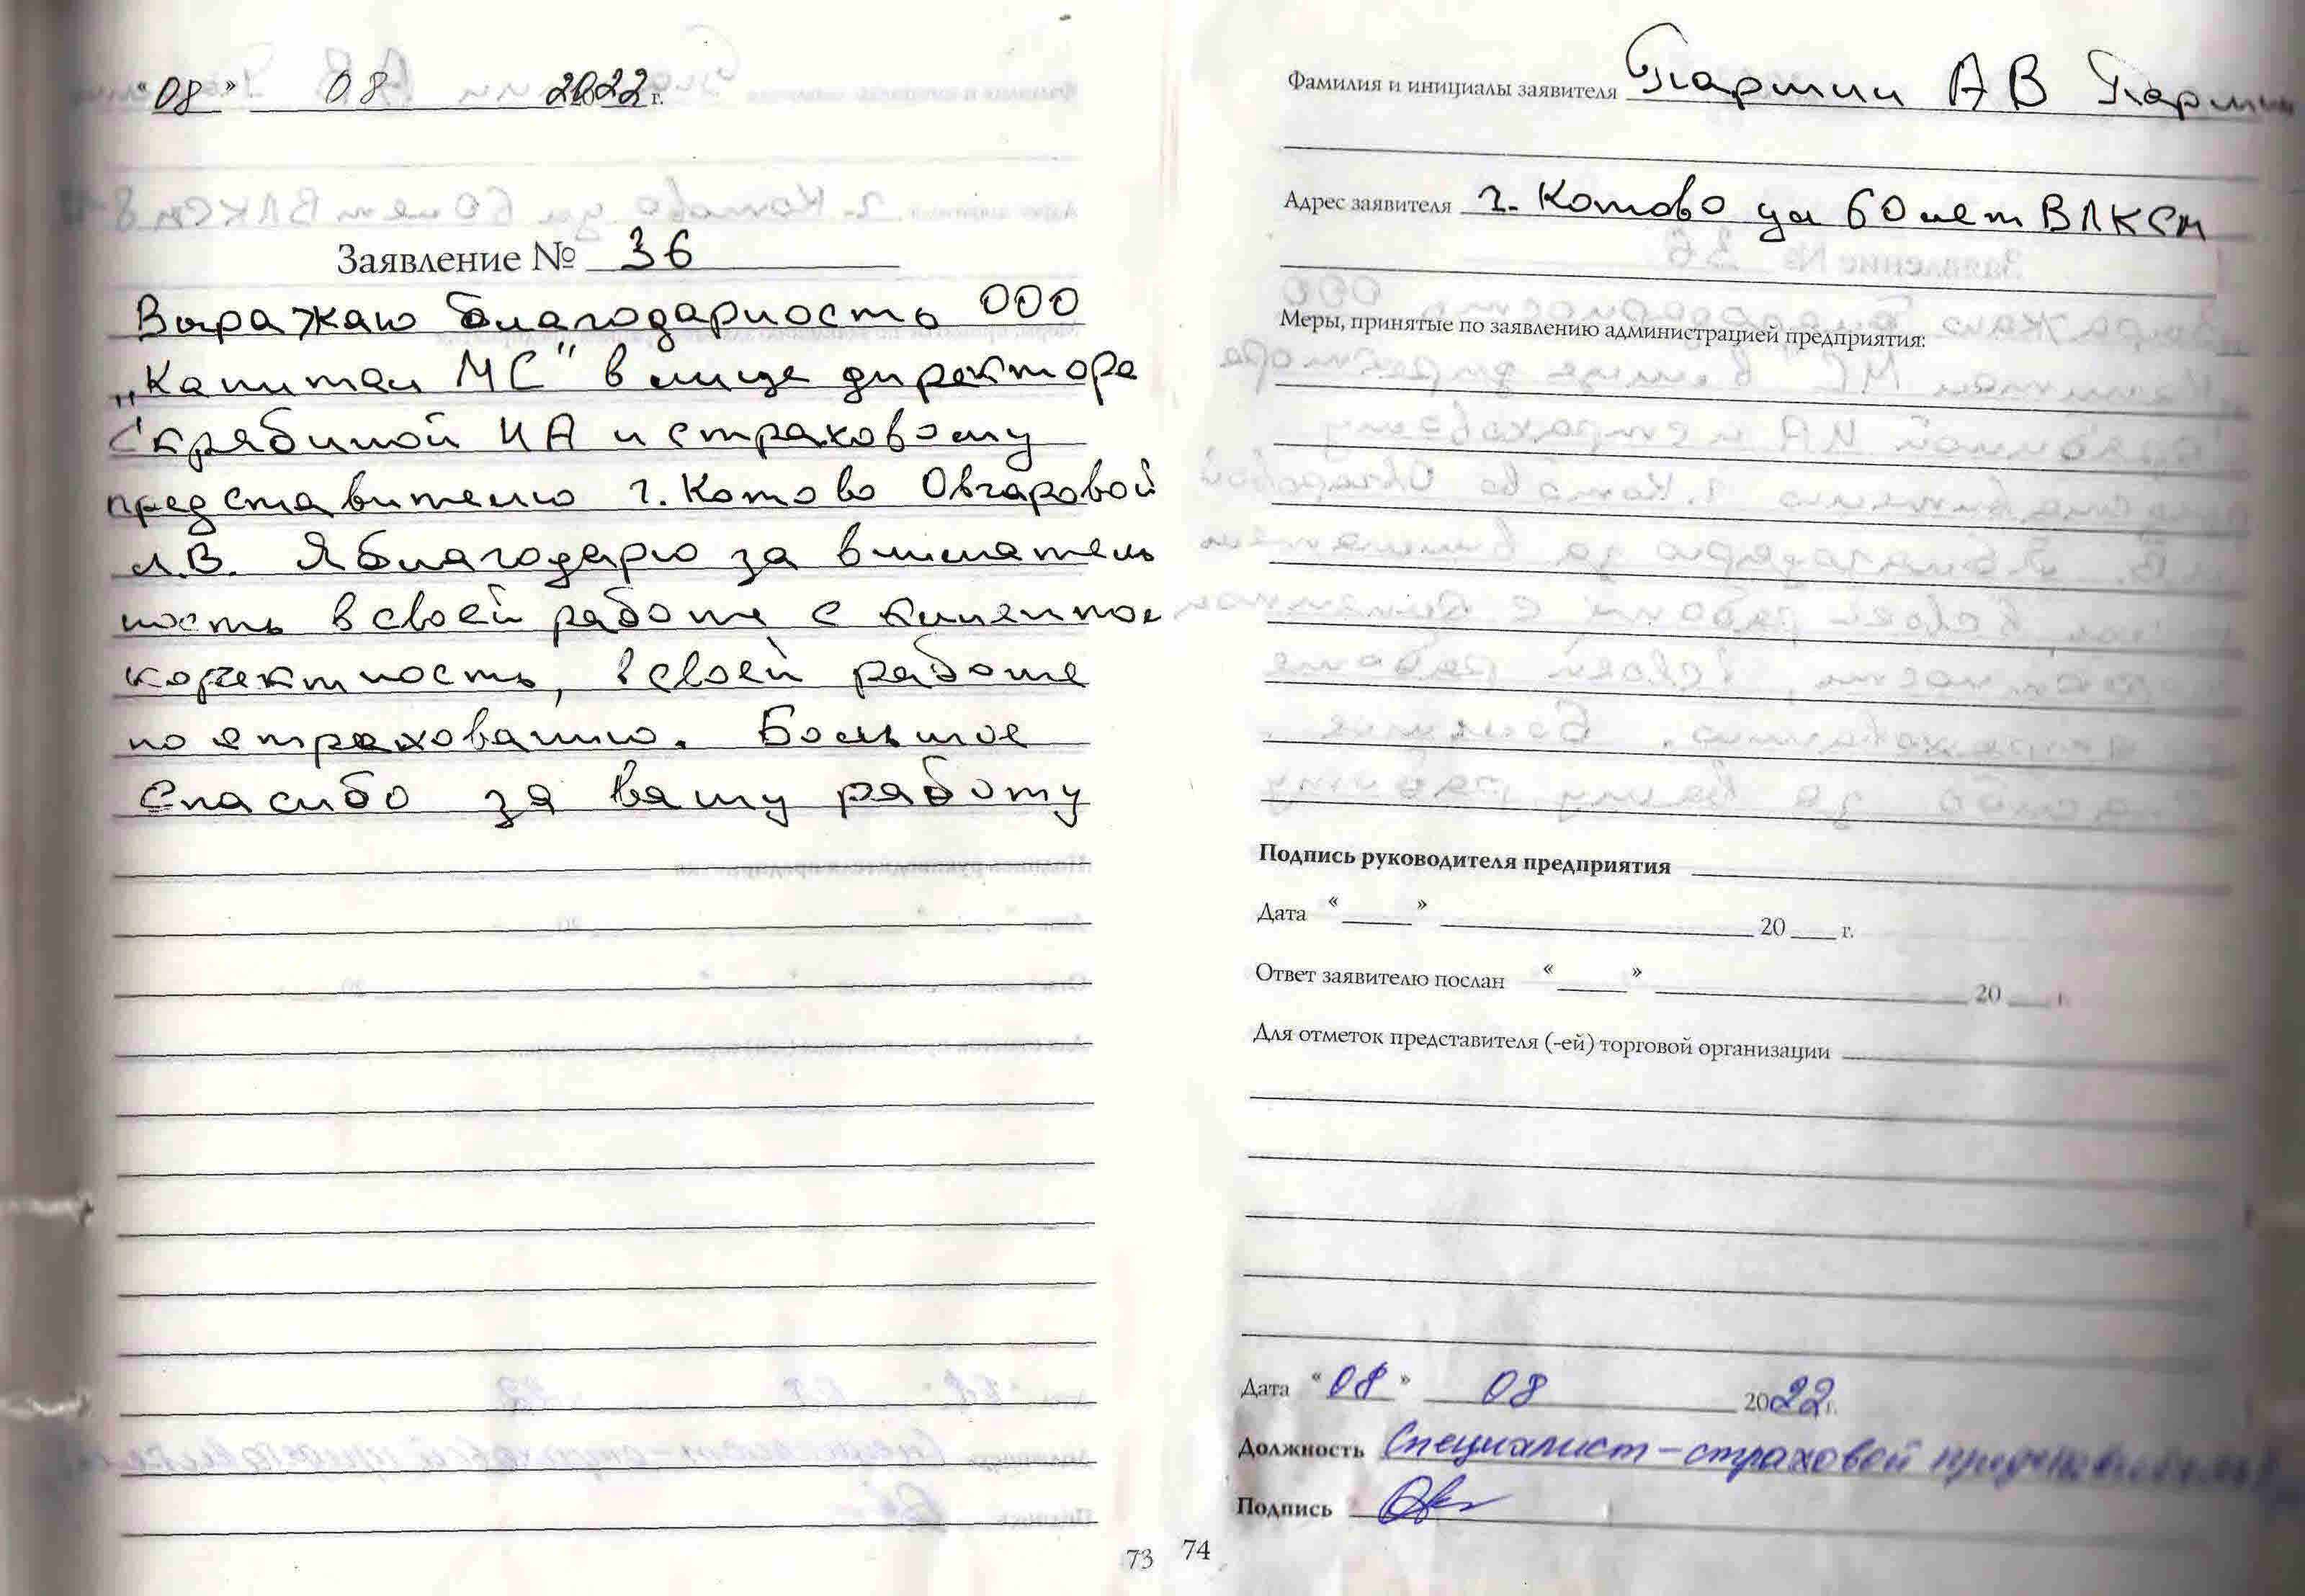 "08" 08 2022 г.
Заявление № 36
Выражаю благодарность ООО
„Капитал МС" в лице директора
Скрябиной И А и страховому
представителю г. Котово Овчаровой
Л.В. Я благодарю за вниматель
ность в своей работе с клиентом
корректность, в своей работе
по страхованию. Большое
Спасибо за вашу работу
73
Фамилия и инициалы заявителя Паршин А В
Адрес заявителя г. Котово ул 60 лет ВЛКСМ
Меры, принятые по заявлению администрацией предприятия:
Подпись руководителя предприятия
Дата « » 20 г.
Ответ заявителю послан « » 20 г.
Для отметок представителя (-ей) торговой организации
Дата "08" 08 2022 г.
Должность Специалист-страховой представитель
Подпись
74